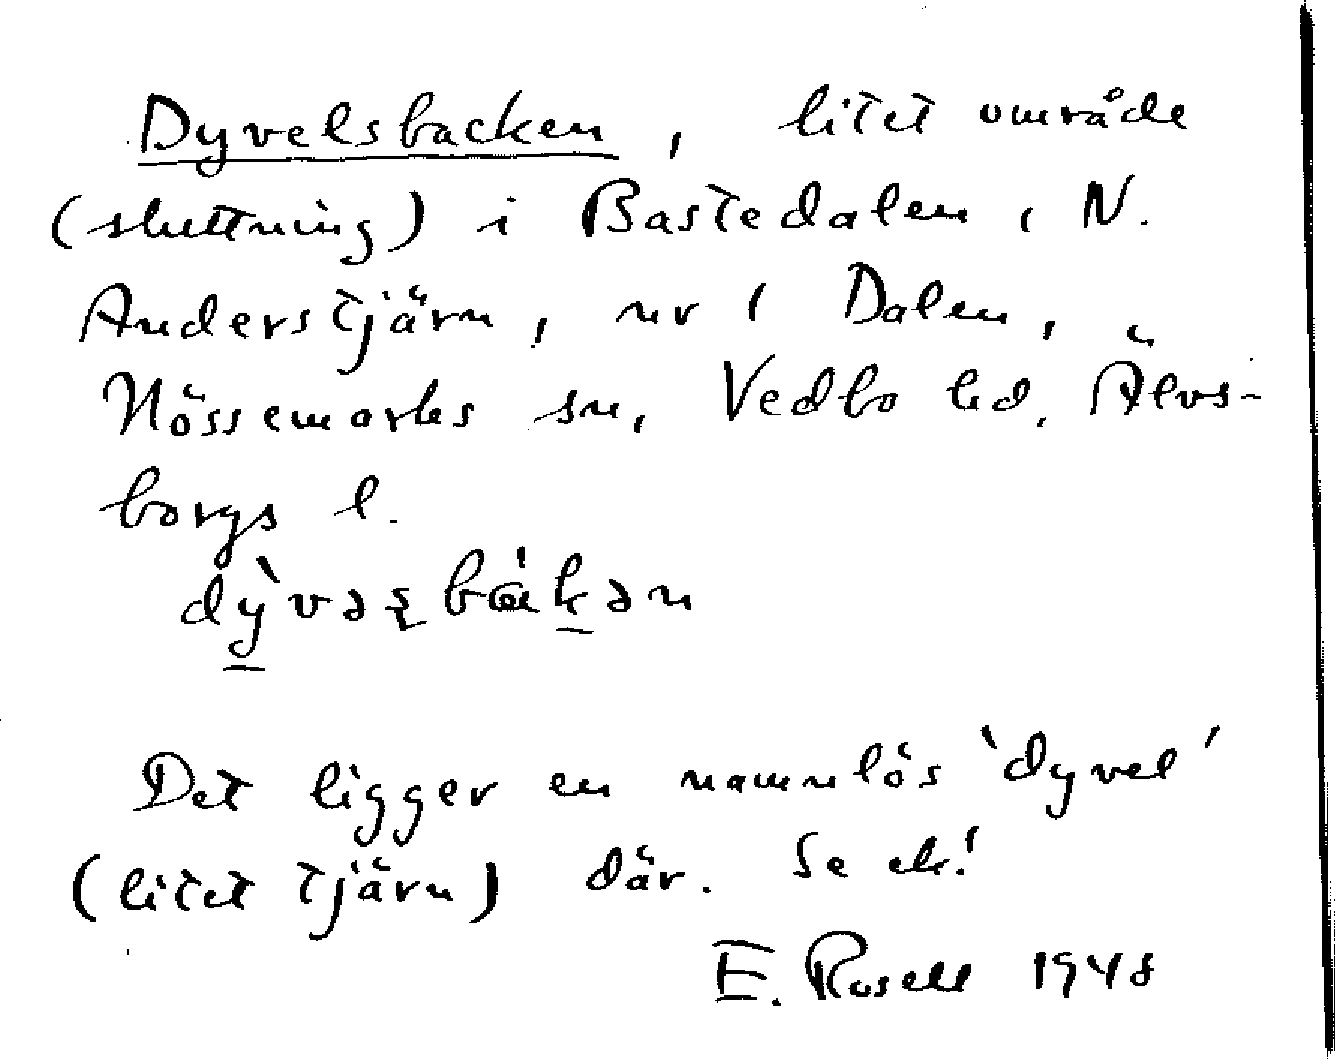 Dyvelsbacken, litet område
(sluttning) i Bastedalen, N.
Anderstjärn, nr 1 Dalen,
Nössemarks sn, Vedbo hd, Älvs-
borgs l.
dỳvəʂbákən
Det ligger en namnlös 'dyvel'
(litet tjärn) där. Se ek!
E. Rosell 1948